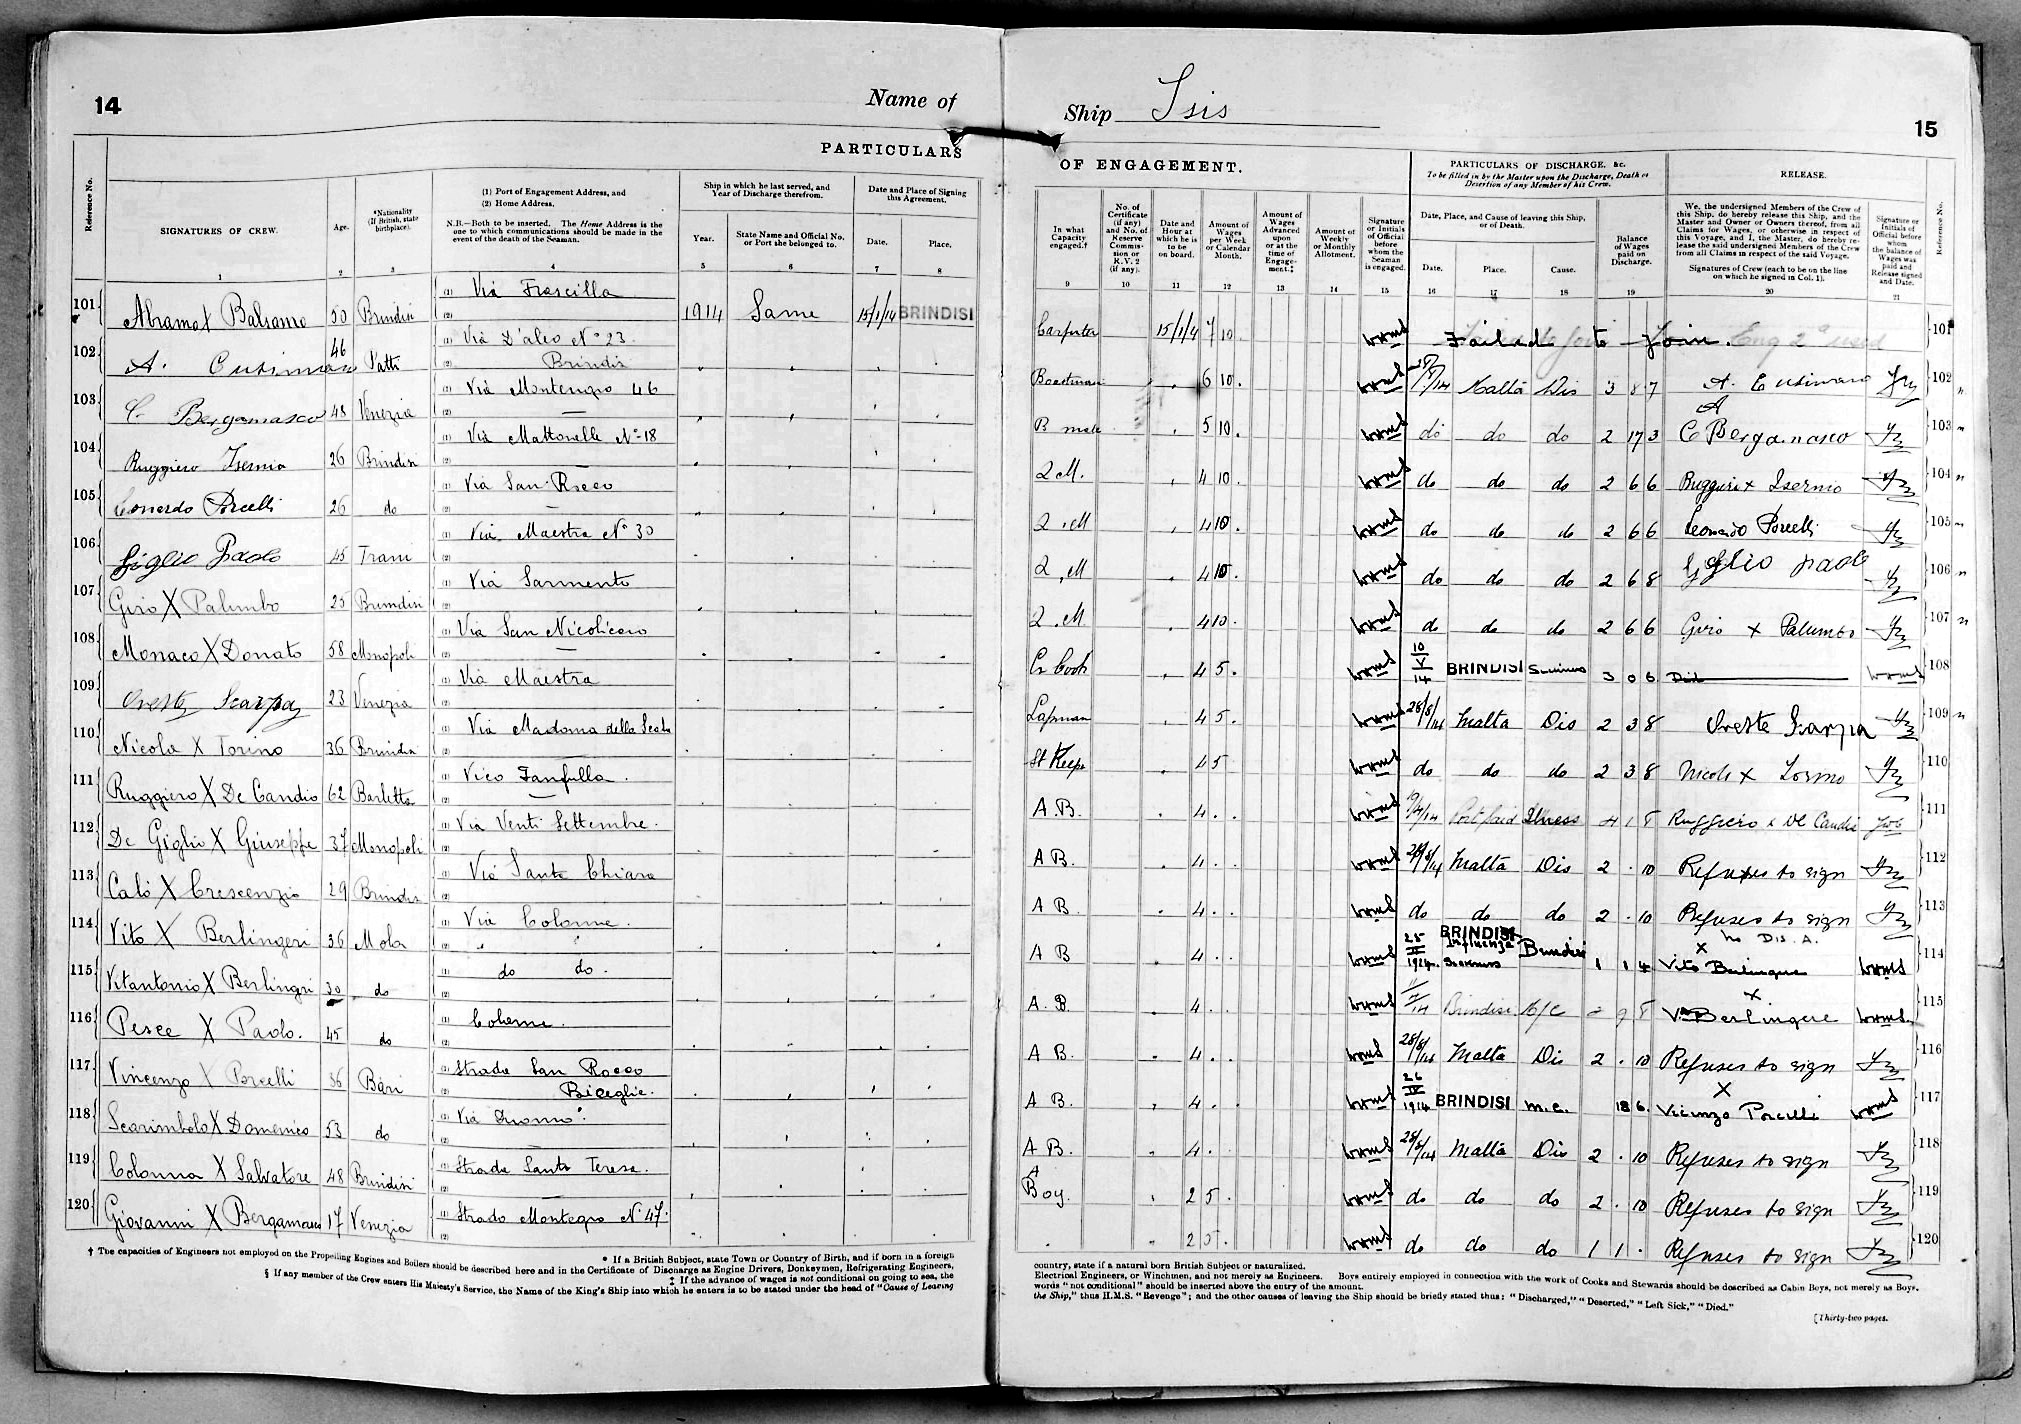 14
Name of
PARTICULARS
Reference No.
SIGNATURES OF CREW.
Age.
*Nationality (If British, state birthplace).
(1) Port of Engagement Address, and
(2) Home Address.
N.B.—Both to be inserted. The Home Address is the one to which communications should be made in the event of the death of the Seaman.
Ship in which he last served, and Year of Discharge therefrom.
Year.
State Name and Official No. or Port she belonged to.
Date and Place of Signing this Agreement.
Date.
Place.
1 2 3 4 5 6 7 8
101 Abramo X Balsamo 50 Brindisi (1) Via Frascilla (2) 1914 Same 15/1/14 BRINDISI
102 A. Cusimano 46 Patti (1) Via D'aleo No 23. (2) Brindisi
103 C. Bergamasco 48 Venezia (1) Via Montenegro 46 (2) —
104 Ruggiero Isernio 26 Brindisi (1) Via Mattonelle No 18 (2) —
105 Leonardo Porcelli 26 do (1) Via San Rocco (2) —
106 Giglio Paolo 45 Trani (1) Via Maestra No 30 (2)
107 Giro X Palumbo 25 Brindisi (1) Via Sarmento (2)
108 Monaco X Donato 58 Monopoli (1) Via San Nicolicoro (2) —
109 Oreste Scarpa 23 Venezia (1) Via Maestra (2)
110 Nicola X Torino 36 Brindisi (1) Via Madonna della Scala (2)
111 Ruggiero X De Candio 62 Barletta (1) Vico Fanfulla. (2) —
112 De Giglio X Giuseppe 37 Monopoli (1) Via Venti Settembre. (2)
113 Calò X Crescenzio 29 Brindisi (1) Via Santa Chiara (2)
114 Vito X Berlingeri 36 Mola (1) Via Colonne. (2)
115 Vitantonio X Berlingri 30 do (1) do do. (2)
116 Pesce X Paolo. 45 do (1) Colonne. (2)
117 Vincenzo X Porcelli 36 Bari (1) Strada San Rocco (2) Bisceglie.
118 Scarimbolo X Domenico 53 do (1) Via Duomo. (2) —
119 Colonna X Salvatore 48 Brindisi (1) Strada Santa Teresa. (2) —
120 Giovanni X Bergamasco 17 Venezia (1) Strada Montegro No 47. (2)
† The capacities of Engineers not employed on the Propelling Engines and Boilers should be described here and in the Certificate of Discharge as Engine Drivers, Donkeymen, Refrigerating Engineers,
* If a British Subject, state Town or Country of Birth, and if born in a foreign
‡ If the advance of wages is not conditional on going to sea, the
§ If any member of the Crew enters His Majesty's Service, the Name of the King's Ship into which he enters is to be stated under the head of "Cause of Leaving
Ship Isis
15
OF ENGAGEMENT.
PARTICULARS OF DISCHARGE, &c.
To be filled in by the Master upon the Discharge, Death or Desertion of any Member of his Crew.
RELEASE.
In what Capacity engaged.†
No. of Certificate (if any) and No. of Reserve Commission or R.V. 2 (if any).
Date and Hour at which he is to be on board.
Amount of Wages per Week or Calendar Month.
Amount of Wages Advanced upon or at the time of Engagement.‡
Amount of Weekly or Monthly Allotment.
Signature or Initials of Official before whom the Seaman is engaged.
Date, Place, and Cause of leaving this Ship, or of Death.
Date.
Place.
Cause.
Balance of Wages paid on Discharge.
We, the undersigned Members of the Crew of this Ship, do hereby release this Ship, and the Master and Owner or Owners thereof, from all Claims for Wages, or otherwise in respect of this Voyage, and I, the Master, do hereby release the said undersigned Members of the Crew from all Claims in respect of the said Voyage.
Signatures of Crew (each to be on the line on which he signed in Col. 1).
Signature or Initials of Official before whom the balance of Wages was paid and Release signed and Date.
Reference No.
9 10 11 12 13 14 15 16 17 18 19 20 21
Carpenter 15/1/4 7 10. Failed to Join. 101
Boatman 6 10. 28/5/14 Malta Dis 3 8 7 A. Cusimano 102
B mate 5 10. do do do 2 17 3 C Bergamasco 103
Q M. 4 10. do do do 2 6 6 Ruggiero x Isernio 104
Q. M 4 10. do do do 2 6 6 Leonardo Porcelli 105
Q. M 4 10. do do do 2 6 8 Giglio paolo 106
Q. M 4 10. do do do 2 6 6 Giro x Palumbo 107
Cr Cook 4 5. 10/V/14 BRINDISI 3 0 6 108
Lapman 4 5. 28/5/14 Malta Dis 2 3 8 Oreste Scarpa 109
St Keep 4 5 do do do 2 3 8 Nicola x Torino 110
A.B. 4. Port Said Illness 4 1 8 Ruggiero x De Candia 111
A B. 4. 28/5/14 Malta Dis 2 . 10 Refuses to sign 112
A B. 4. do do do 2 . 10 Refuses to sign 113
A B 4. 25 1914 BRINDISI Influenza Brindisi 1 1 4 X No Dis. A. Vito Berlingeri 114
A. B. 4. Brindisi M/C 9 8 X V. Berlingere 115
A B. 4. 28/5/14 Malta Dis 2 . 10 Refuses to sign 116
A B. 4. 26/IV/1914 BRINDISI M.C. 18 6. X Vicenzo Porcelli 117
A B. 4. 28/5/14 Malta Dis 2 . 10 Refuses to sign 118
Boy. 2 5. do do do 2 . 10 Refuses to sign 119
2 5. do do do 1 1 . Refuses to sign 120
country, state if a natural born British Subject or naturalized.
Electrical Engineers, or Winchmen, and not merely as Engineers. Boys entirely employed in connection with the work of Cooks and Stewards should be described as Cabin Boys, not merely as Boys.
words "not conditional" should be inserted above the entry of the amount.
the Ship," thus H.M.S. "Revenge"; and the other causes of leaving the Ship should be briefly stated thus: "Discharged," "Deserted," "Left Sick," "Died."
[Thirty-two pages.